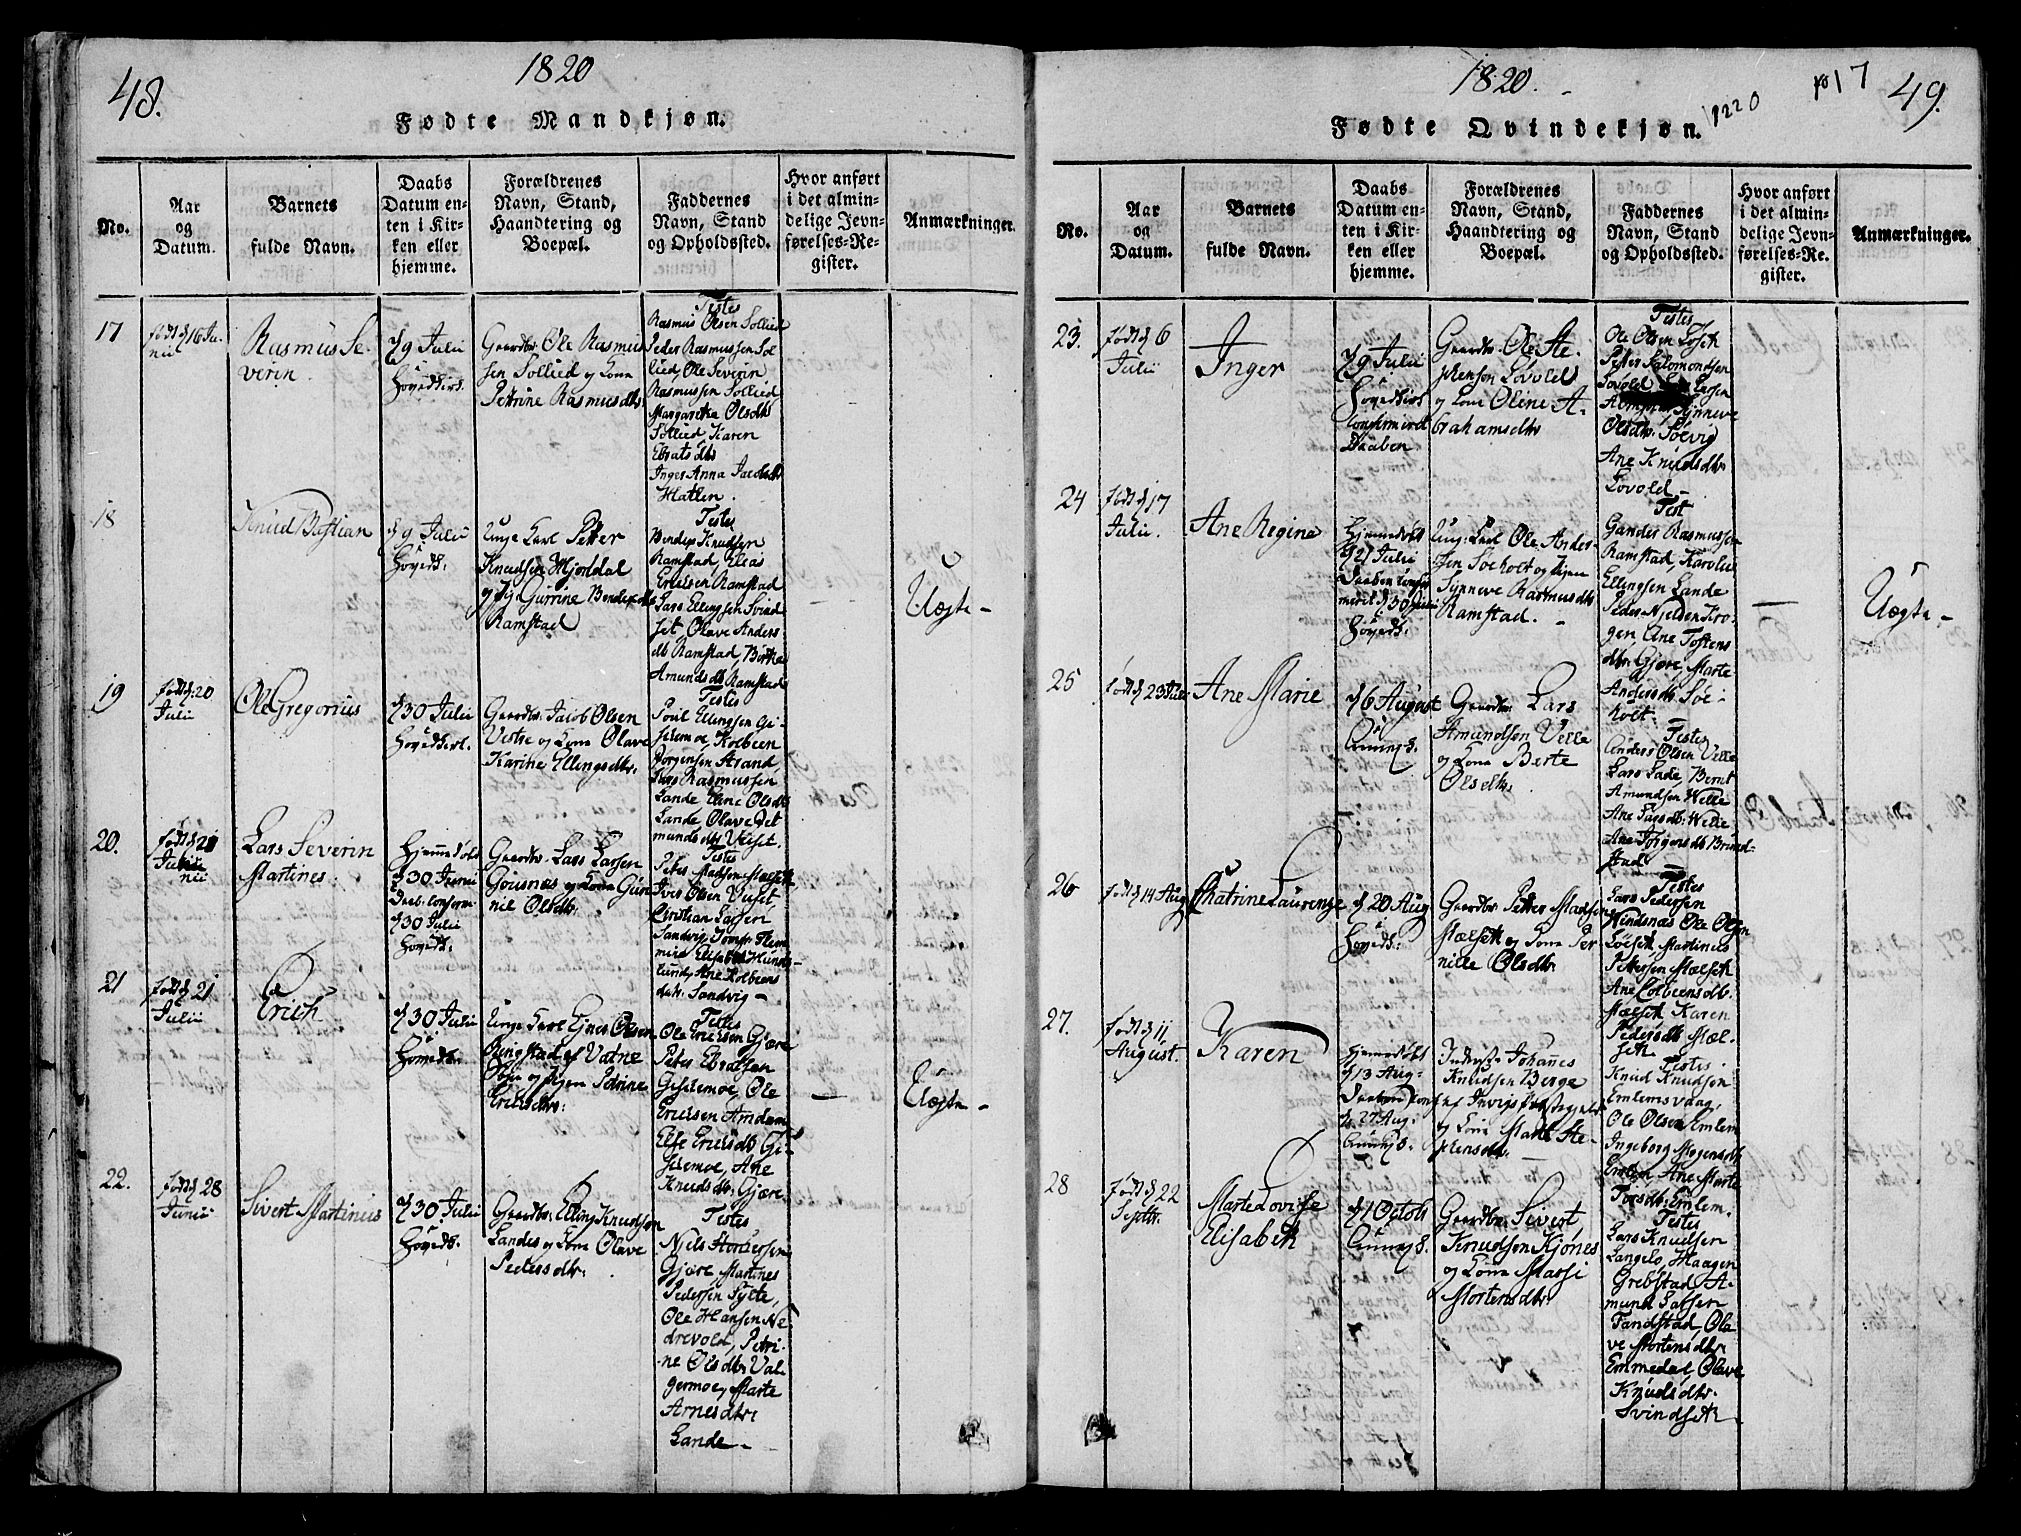 48.
1820
Fødte Mandkjøn.
No.
Aar
og
Datum.
Barnets
fulde Navn.
Daabs
Datum en-
ten i Kir-
ken eller
hjemme.
Forældrenes
Navn, Stand,
Haandtering og
Boepæl.
Faddernes
Navn, Stand
og Opholdssted.
Hvor anført
i det almin-
delige Jevn-
førelses-Re-
gister.
Anmærkninger.
17
født d 16 Ju-
nii
Rasmus Se-
verin.
d 9 Julii
Hovedkirk.
Gaardbr. Ole Rasmus
sen Sollied og Kone
Petrine Rasmusdtr.
Testes
Rasmus Olsen Sollied
Peder Rasmussen Sol
lied, Ole Severin
Rasmussen Sollied
Margaretha Olsdtr
Sollied Karen
Ebratsdtr
Inger Anna Jacobsdtr
Hatlen.
18
Knud Bastian
d 9 Julii
Hovedk.
Unge Karl Petter
Knudsen Mjordal
og Pige Gurrine Bendixdtr
Ramstad
Testes
Bendix Knudsen
Ramstad, Elias
Ramstad
Lars Ellingsen Svind
set, Olave Anders
db Ramstad, Berthe
Amundsdtr Ramstad
Uægte -
19
født d: 20
Julii
Ole Gregorius
d 30 Julii
Hovedkirk.
Gaardbr. Jacob Olsen
Vestre og Kone Olave
Karine Ellingsdtr.
Testes
Poul Ellingsen Gi-
skemoe, Kolbeen
Jörgensen Strand
Lars Rasmussen
Lande, Eline Olsdtr
Lande Olave Det
mundsdtr Uriset.
20.
født d 21
Junii
Lars Severin
Martines.
Hjemmedøbt
d 30 Junii
Daab. confirm
d 30 Julii
Hovedk.
Gaardbr. Lars Larsen
Gousnæs og Kone Gun
nil Olsdtr.
Testes
Peter Madsen Mælseth
Iver Olsen Uriset
Christian Larsen
Sandvig, Jomfr.
Elisabeth Hunds
lund, Ane Kolbeens
datr. Sandvig -
21
født d 21
Julii
Erich
d 30 Julii
Hovedk.
Unge Karl Ejnes Olsen
Ringstad af Vatne
Sogn og Pigen Petrine
Ericsdtr.
Testes
Ole Ericksen Gjære
Peter Ebratsen
Giskemoe, Ole
Ericsen Amdam
Else Ericsdtr Gi-
skemoe, Ane
Knudsdtr. Gjære.
Uægte -
22.
født d 28
Junii
Sivert Martinus
d 30 Julii
Hovedk.
Gaardbr. Elling Knudsen
Landes og Kone Olave
Peetersdtr.
Testes
Niels Storkersen
Gjære, Martines
Pedersen Sylte,
Ole Hansen Ne-
drevold, Petri-
ne Olsdtr Val-
germoe, Marte
Arnesdtr
Lande -
1820.
1220
17
49.
Fødte Qvindekjøn.
No.
Aar
og
Datum.
Barnets
fulde Navn.
Daabs
Datum en-
ten i Kir-
ken eller
hjemme.
Forældrenes
Navn, Stand,
Haandtering og
Boepæl.
Faddernes
Navn, Stand
og Opholdssted.
Hvor anført
i det almin-
delige Jevn-
førelses-Re-
gister.
Anmærkninger.
23.
født d 6
Julii
Inger
d 9 Julii
Hovedkirk
confirmeret
Daaben
Gaardbr. Ole Ste-
phensen Løvold
og Kone Oline A-
brahamsdtr
Testes
Ole Olsen
Peter Salomondsen
Løvold Larsen
Synneve
Olsdtr. Søevig
Ane Knudsdtr
Løvold -
24
født d 17
Julii.
Ane Regine
Hjemmedøbt
d 21 Julii
Daaben confir
meret d 30 Julii
Hovedk.
Ung: Karl Ole Ander-
sen Soeholt og Pigen
Synneve Rasmusdtr
Ramstad. -
Test
Gunder Rasmussen
Ramstad, Karolus
Ellingsen Lande
Peder Nielsen Kro-
gen Ane Tostens
dtr. Gjære, Marte
Andersdtr Soe-
holt.
Uægte -
25
født d 23 Julii
Ane Marie
d 6 August
Gaardbr. Lars
Amundsen Velle
og Kone Berte
Olsdtr.
Testes
Anders Olsen Velle
Lars Lade, Bernt
Amundsen Welle
Ane Pagsdtr. Welle
Ane Jörgensdtr Brund-
stad
26
født d 14 Aug
Chatrine Laurenze
d 20 Aug
Hovedk.
Gaardbr. Petter Madsen
Mælseth og Kone Per
nille Olsdtr.
Testes
Lars Pedersen
Windsnæs Ole Olsen
Løeseth Martinus
Pettersen Mælseth
Ane Colbeensdtr.
Mælseth Karen
Pedersdtr Mæl-
seth.
27.
født d 11
August.
Karen
Hjemmedøbt
d 13 Aug-
Daaben conf
d. 27 Aug.
Inderst Johannes
Knudsen Berge
af Invigs Præstegjeld
og Kone Marte Ste-
phensdtr.
Testes
Knud Knudsen
Emlemsvaag,
Ole Olsen Emlem
Ingeborg Mogensdtr
Emlem Ane Marte
Torsdtr: Emlem.
28
født d 22
Septbr.
Marte Lovise
Elisabeth
d 1 Octob
Gaardbr. Sivert
Knudsen Kjønes
og Kone Massi
Mortensdtr.
Testes
Lars Knudsen
Langelo, Haagen
Grebstad A-
mund Larsen
Tandstad Ola-
ve Mortensdtr
Emmedal, Olave
Knudsdtr.
Svindseth